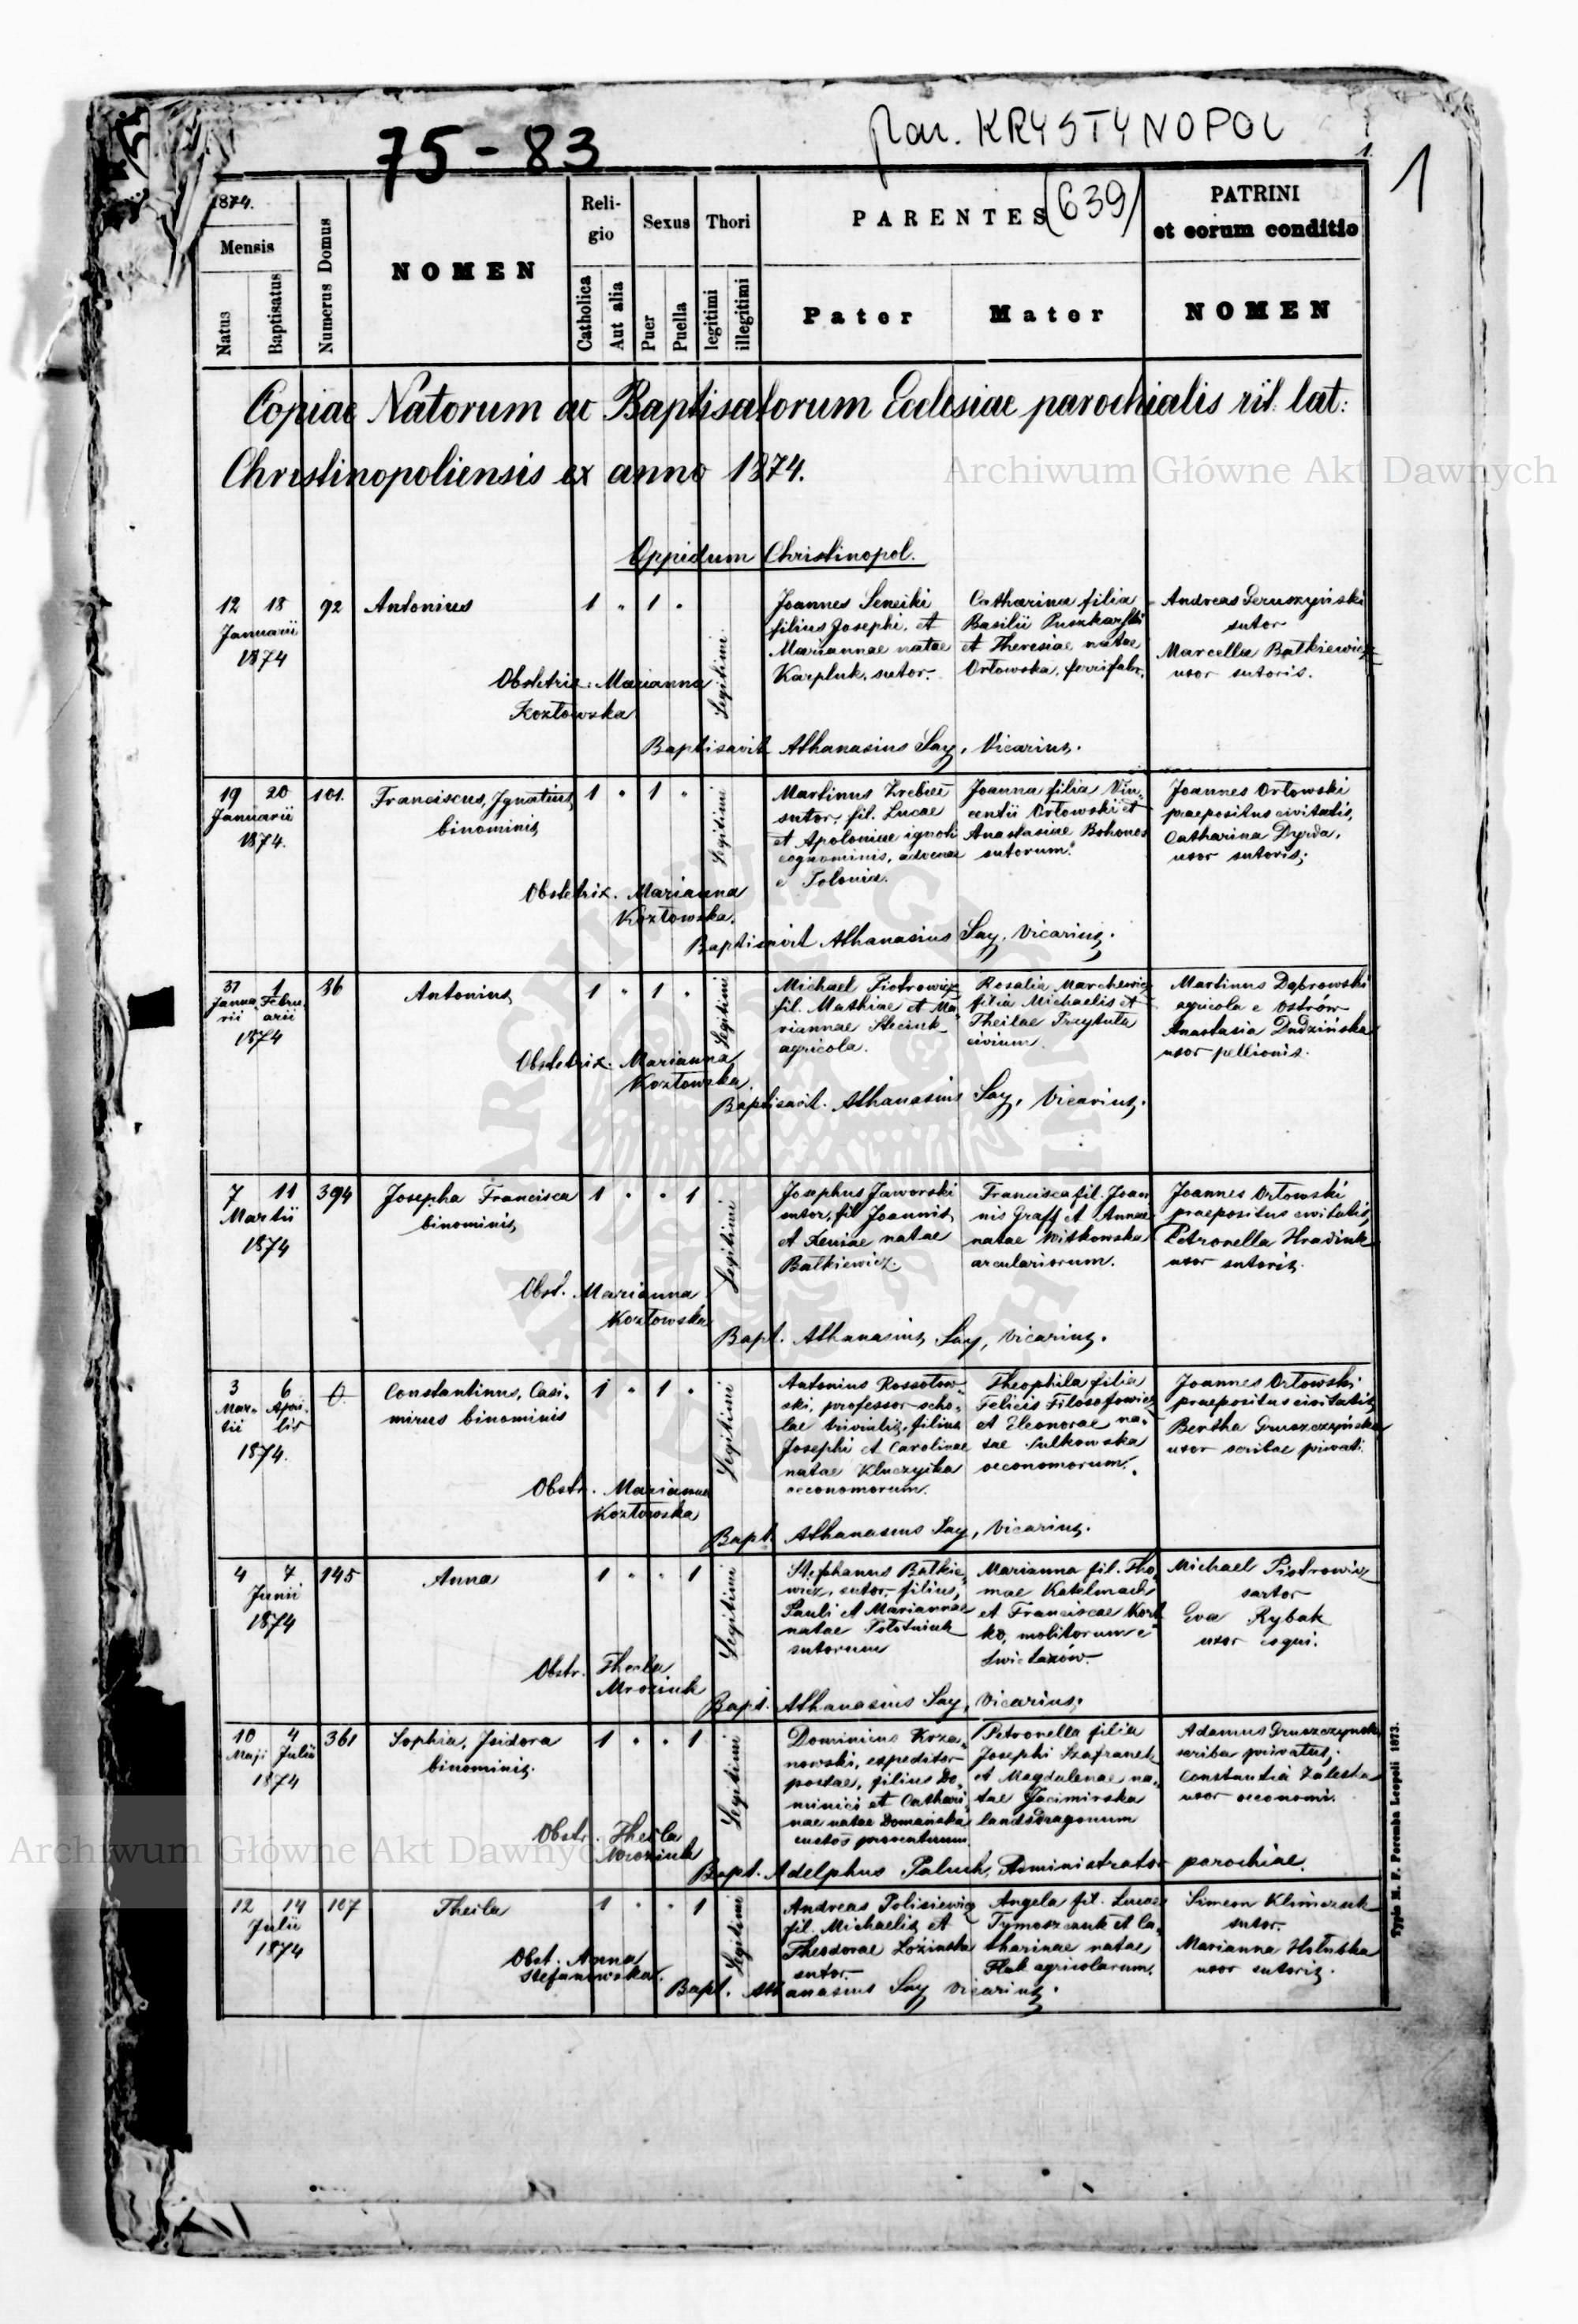 par. KRYSTYNOPOL
75-83
1
1.
1874.
Mensis
Natus
Baptisatus
Numerus Domus
NOMEN
Religio
Catholica
Aut alia
Sexus
Puer
Puella
Thori
legitimi
illegitimi
PARENTES
(639)
Pater
Mater
PATRINI
et eorum conditio
NOMEN
Copiae Natorum ac Baptisatorum Ecclesiae parochialis rit: lat:
Christinopoliensis ex anno 1874.
Archiwum Główne Akt Dawnych
Oppidum Christinopol.
12 18 92 Antonius 1 " 1 "
Januarii
1874
Legitimi
Joannes
filius Josephi, et
Mariannae natae
Karpluk, sutor.
Catharina filia
Basilii
et Theresiae natae
Orłowska, ferrifabr.
Andreas
sutor
Marcella Bałkiewicz
uxor sutoris.
Obstetrix: Marianna
Kozłowska
Baptisavit Athanasius Say, Vicarius.
19 20 101. Franciscus, Ignatius 1 " 1 "
Januarii
1874.
binominis
Legitimi
Martinus
sutor, fil. Lucae
et Apoloniae ignoti
cognominis, advenae
e Polonia.
Joanna filia Vin-
centii Orłowski et
Anastasiae Bohonos
sutorum.
Joannes Orłowski
praepositus civitatis,
Catharina Dyrda,
uxor sutoris;
Obstetrix. Marianna
Kozłowska.
Baptisavit Athanasius Say, Vicarius.
31 1 86 Antonius 1 " 1 "
Janua- Febru-
rii arii
1874
Legitimi
Michael Piotrowicz
fil. Mathiae et Ma-
riannae
agricola.
Rosalia
filia Michaelis et
Theclae Przytuła
civium.
Martinus Dąbrowski
agricola e Ostrów
Anastasia Dudzińska
uxor pellionis.
Obstetrix. Marianna
Kozłowska.
Baptisavit. Athanasius Say, Vicarius.
7 11 394 Josepha Francisca 1 " " 1
Martii
1874
binominis
Legitimi
Josephus Jaworski
sutor, fil Joannis
et Xeniae natae
Bałkiewicz.
Francisca fil. Joan
nis Graff et Annae
natae Witkowska
arculariorum.
Joannes Orłowski
praepositus civitatis,
Petronella Hradiuk
uxor sutoris.
Obst. Marianna
Kozłowska
Bapt. Athanasius Say, Vicarius.
3 6 0 Constantinus, Casi- 1 " 1 "
Mar- Apri-
tii lis
1874.
mirus binominis
Legitimi
Antonius Rossołow-
ski, professor scho-
lae trivialis, filius
Josephi et Carolinae
natae
oeconomorum.
Theophila filia
Felicis Filosofowicz
et Eleonorae na-
tae Sulkowska
oeconomorum.
Joannes Orłowski
praepositus civitatis
Bertha Gruszczyńska
uxor scribae privati.
Obstr. Marianna
Kozłowska
Bapt. Athanasius Say, Vicarius.
4 7 145 Anna 1 " " 1
Junii
1874
Legitimi
Stephanus Bałkie-
wicz, sutor, filius,
Pauli et Mariannae
natae
sutorum
Marianna fil. Tho-
mae
et Franciscae
ko, molitorum e
Michael Piotrowicz
sartor
Eva Rybak
uxor coqui.
Obstr. Thecla
Mroziuk
Bapt. Athanasius Say, Vicarius.
10 4 361 Sophia, Isidora 1 " " 1
Maji Julii
1874
binominis.
Legitimi
Dominicus Krza-
nowski, expeditor
postae, filius Do-
minici et Cathari-
nae natae Domańska
custos proventuum
Petronella filia
Josephi Szafranek
et Magdalenae na-
tae Jacimirska
landsdragonum
Adamus Gruszczyński
scriba privatus;
Constantia Zaleska
uxor oeconomi.
Obstr. Thecla
Mroziuk
Bapt. Adelphus Paluch, Administrator parochiae.
Archiwum Główne Akt Dawnych
12 14 107 Thecla 1 " " 1
Julii
1874
Legitimi
Andreas Polisiewicz
fil. Michaelis et
Theodorae Łozińska
sutor.
Angela fil. Lucae
Tymoszczuk et Ca-
tharinae natae
Flak agricolarum.
Simeon Klimczuk
sutor.
Marianna
uxor sutoris.
Obst. Anna
Stefanowska.
Bapt. Athanasius Say Vicarius.
Typis M. F. Poremba Leopoli 1873.